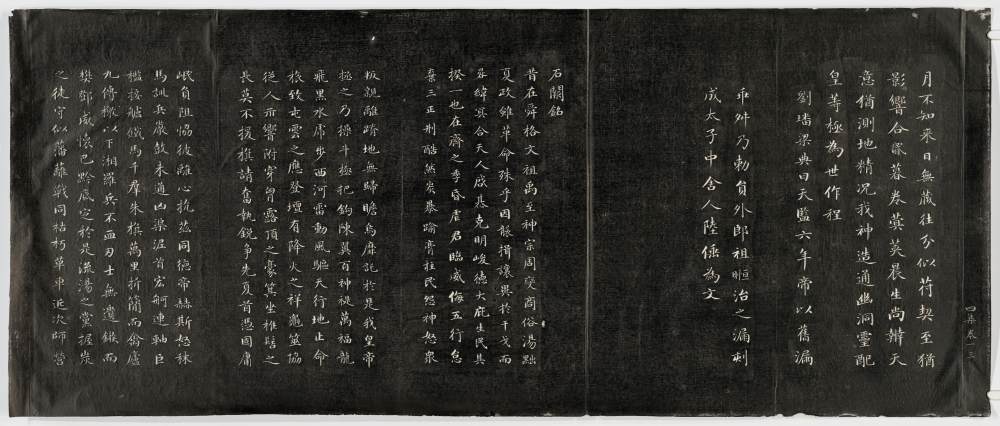 四集卷一 三
月不知來日無藏往分似符契至猶
影響合昬暮卷蓂莢晨生尚辨天
意猶測地精況我神造通幽洞靈配
皇等極為世作程
劉璠梁典曰天監六年帝以舊漏
乖舛乃勅員外郎祖暅治之漏刻
成太子中舍人陸倕為文
石闕銘
昔在舜格文祖禹至神宗周變商俗湯黜
夏政雖革命殊乎因襲揖讓異於干戈而
晷緯冥合天人啟惎克明峻德大庇生民其
揆一也在齊之季昏虐君臨威侮五行怠
棄三正刑酷然炭暴踰膏柱民怨神怒眾
叛親離蹐地無歸瞻烏靡託於是我皇帝
拯之乃操斗極把鉤陳翼百神禔萬福龍
飛黑水虎步西河雷動風驅天行地止命
旅致屯雲之應登壇有降火之祥龜筮協
從人示響附穿胷露頂之豪箕坐椎髻之
長莫不援旗請奮執銳爭先夏首憑固庸
岷負阻協彼離心抗茲同德帝赫斯怒秣
馬訓兵嚴鼓未通凶渠泥首宏舸連軸巨
檻接艫鐵馬千群朱旗萬里折簡而禽廬
九傳檄以下湘羅兵不血刃士無遺鏃而
樊鄧威懷巴黔底定於是流湯之黨握炭
之徒守似藩籬戰同枯朽革車近次師營